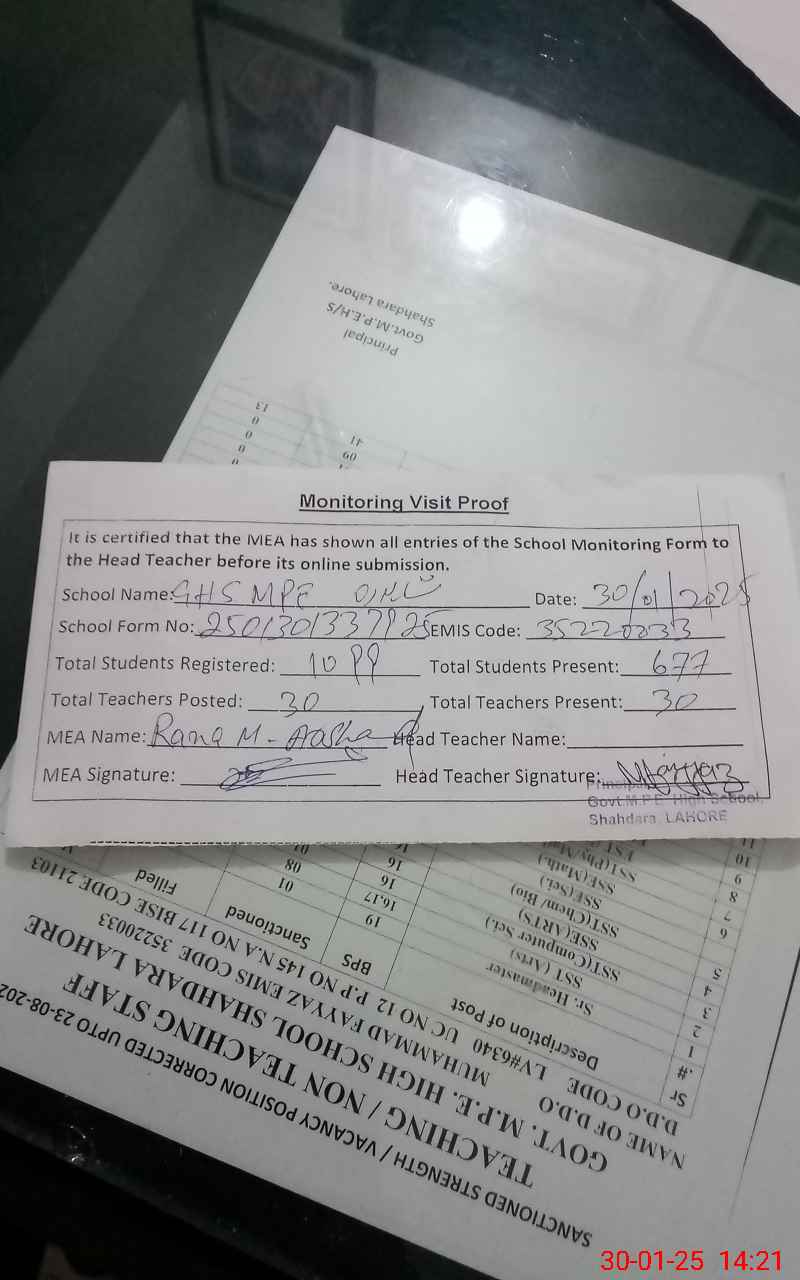 Principal
Govt.M.P.E.H/S
Shahdara Lahore.
13
0
0
0
0
41
60
Monitoring Visit Proof
It is certified that the MEA has shown all entries of the School Monitoring Form to
the Head Teacher before its online submission.
School Name: GHS MPE Date: 30/01/2025
School Form No: EMIS Code: 35220033
Total Students Registered: 1099 Total Students Present: 677
Total Teachers Posted: 30 Total Teachers Present: 30
MEA Name: Rana M- Head Teacher Name:
MEA Signature: Head Teacher Signature:
Principal
Govt.M.P.E. High School,
Shahdara, LAHORE
SANCTIONED STRENGTH / VACANCY POSITION CORRECTED UPTO 23-08-202
TEACHING / NON TEACHING STAFF
GOVT. M.P.E. HIGH SCHOOL SHAHDARA LAHORE
NAME OF D.D.O MUHAMMAD FAYYAZ EMIS CODE 35220033
D.D.O CODE LV#6340 UC NO 12 P.P NO 145 N.A NO 117 BISE CODE 21103
Sr .# Description of Post BPS Sanctioned Filled
1 Sr. Headmaster 19 01
2 SST (Arts) 16,17 08
3 SST(Computer Sci.) 16
4 SSE(ARTS) 16
5 SST(Chem/ Bio)
6 SSE(Sci.)
7 SSE(Math.)
8
9
10
11
30-01-25 14:21